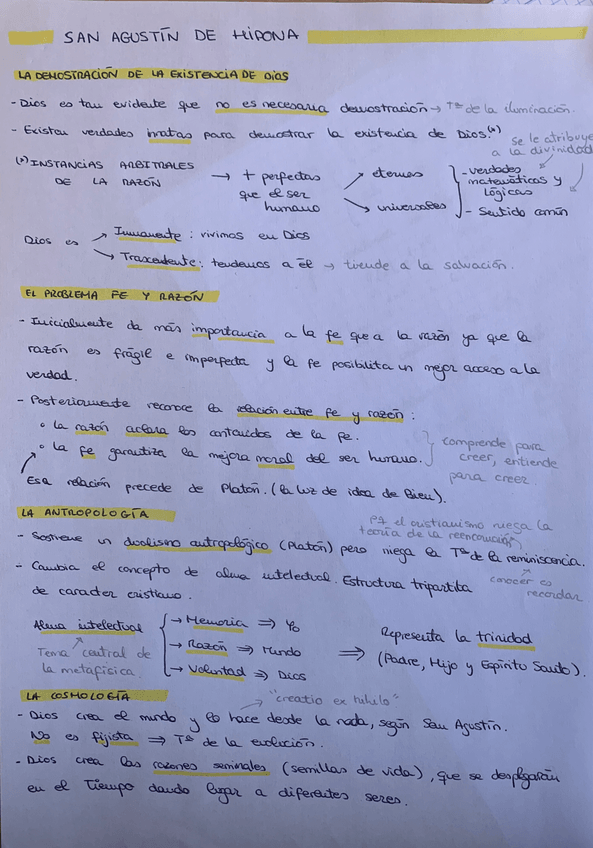 SAN AGUSTÍN DE HIPONA
LA DEMOSTRACIÓN DE LA EXISTENCIA DE DIOS
- Dios es tan evidente que no es necesaria demostración → Tª de la iluminación.
- Existen verdades innatas para demostrar la existencia de Dios.(*)
se le atribuye a la divinidad
(*) INSTANCIAS ARBITRALES DE LA RAZÓN → + perfectas que el ser humano
→ eternas
→ universales
- verdades matemáticas y lógicas
- Sentido común
Dios es
→ Inmanente: vivimos en Dios
→ Trascendente: tendemos a él → tiende a la salvación.
EL PROBLEMA FE Y RAZÓN
- Inicialmente da más importancia a la fe que a la razón ya que la
razón es frágil e imperfecta y la fe posibilita un mejor acceso a la
verdad.
- Posteriormente reconoce la relación entre fe y razón:
° la razón aclara los contenidos de la fe.
° la fe garantiza la mejora moral del ser humano.
comprende para
creer, entiende
para creer.
Esa relación precede de Platón. (la luz de idea de Bien).
LA ANTROPOLOGÍA
pq el cristianismo niega la
teoría de la reencarnación
- Sostiene un dualismo antropológico (Platón) pero niega la Tª de la reminiscencia.
conocer es
recordar
- Cambia el concepto de alma intelectual. Estructura tripartita
de caracter cristiano.
Alma intelectual
Tema central de
la metafísica.
→ Memoria ⇒ Yo
→ Razón ⇒ Mundo
→ Voluntad ⇒ Dios
⇒ Representa la trinidad
(Padre, Hijo y Espíritu Santo).
LA COSMOLOGÍA
→ "creatio ex nihilo"
- Dios crea el mundo y lo hace desde la nada, según San Agustín.
No es fijista ⇒ Tª de la evolución.
- Dios crea las razones seminales (semillas de vida), que se desplegarán
en el Tiempo dando lugar a diferentes seres.